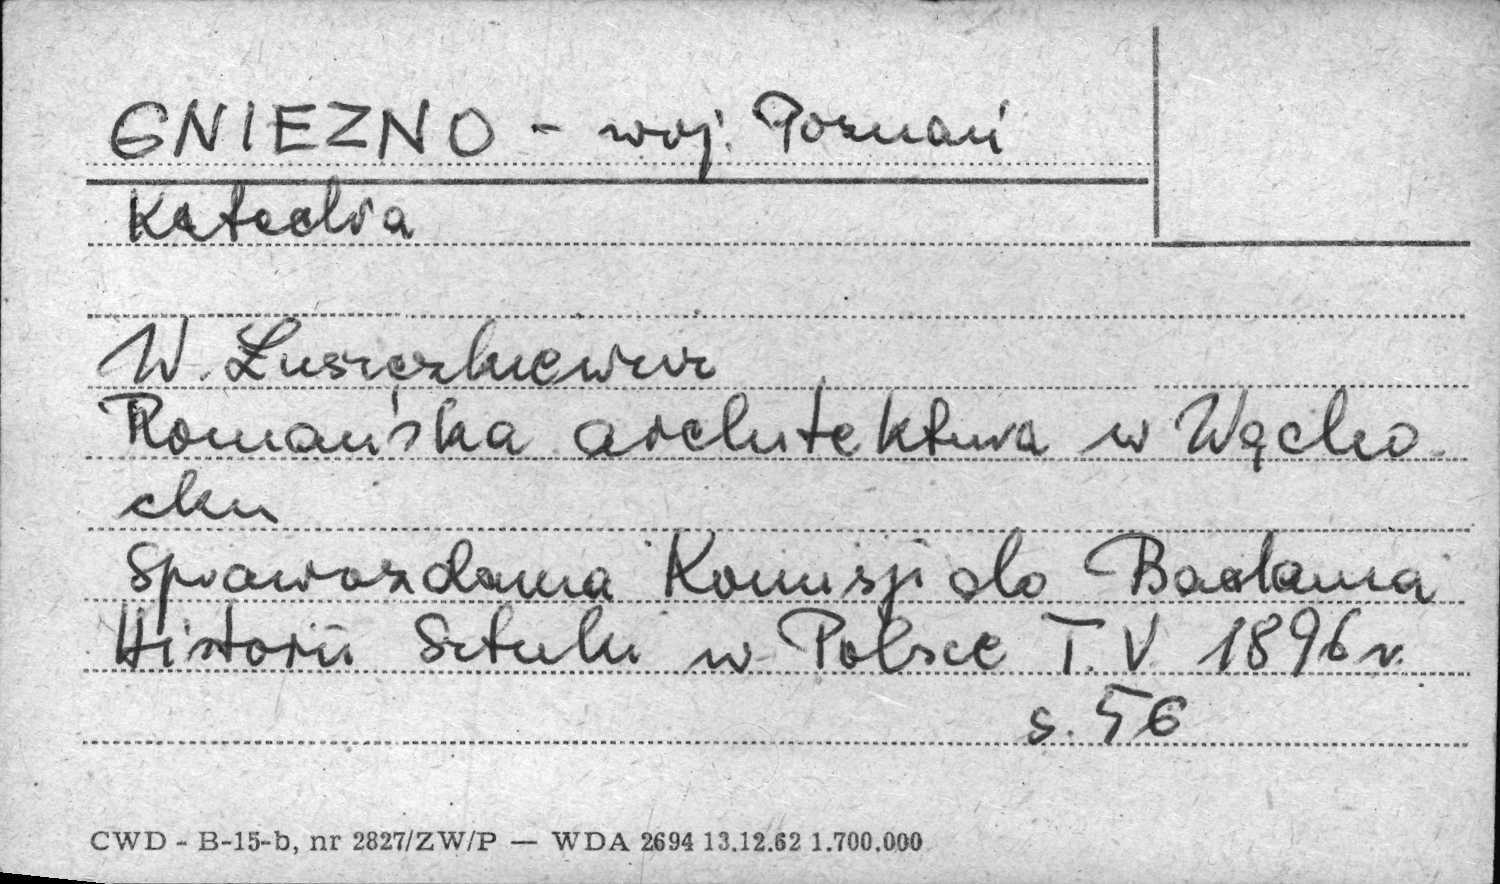 GNIEZNO - woj. Poznań
Katedra
W. Łuszczkiewicz
Romańska architektura w Wącho
cku
Sprawozdania Komisji do Badania
Historii Sztuki w Polsce T. V. 1896 r.
s. 56
CWD - B-15-b, nr 2827/ZW/P — WDA 2694 13.12.62 1.700.000